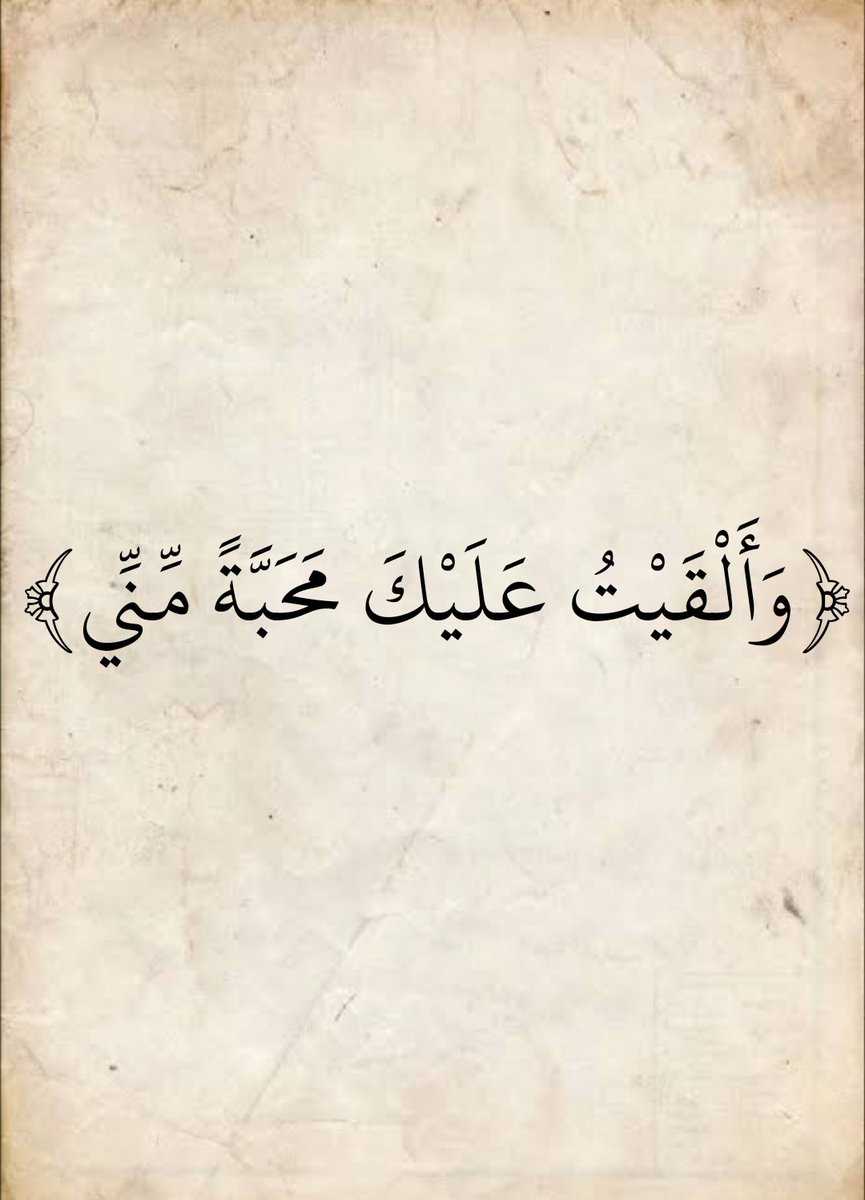 ﴿وَأَلْقَيْتُ عَلَيْكَ مَحَبَّةً مِّنِّي﴾